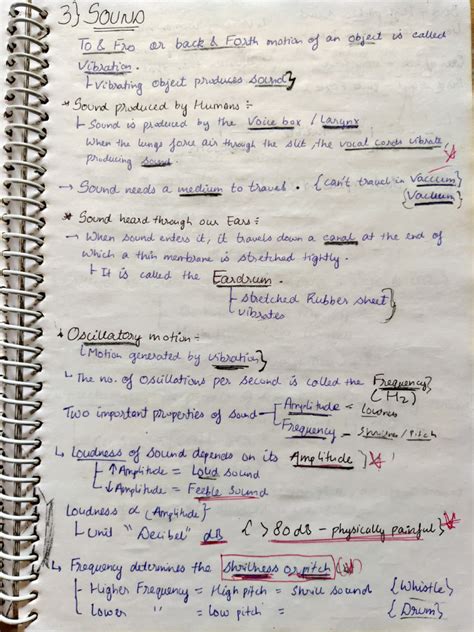 3) SOUND
To & Fro or back & Forth motion of an object is called
Vibration.
Vibrating object produces sound}
* Sound produced by Humans :-
Sound is produced by the Voice box / Larynx
When the lungs force air through the slit, the vocal cords vibrate,
producing sound.
→ Sound needs a medium to travel. {can't travel in Vaccum}
{Vacuum}
* Sound heard through our Ears :-
→ When sound enters it, it travels down a canal at the end of
which a thin membrane is stretched tightly.
It is called the Eardrum.
stretched Rubber sheet}
vibrates
* Oscillatory motion :-
{Motion generated by vibration}
The no. of oscillations per second is called the Frequency}
(HZ)
Two important properties of sound Amplitude = Loudness
Frequency - Shrillness/Pitch
Loudness of sound depends on its Amplitude}
↑Amplitude = Loud sound
↓Amplitude = Feeble Sound
Loudness ∝ (Amplitude)
Unit "Decibel" dB {>80dB - physically painful}
Frequency determines the shrillness or pitch
Higher Frequency = High pitch = Shrill sound {Whistle}
Lower " = low pitch = {Drum}